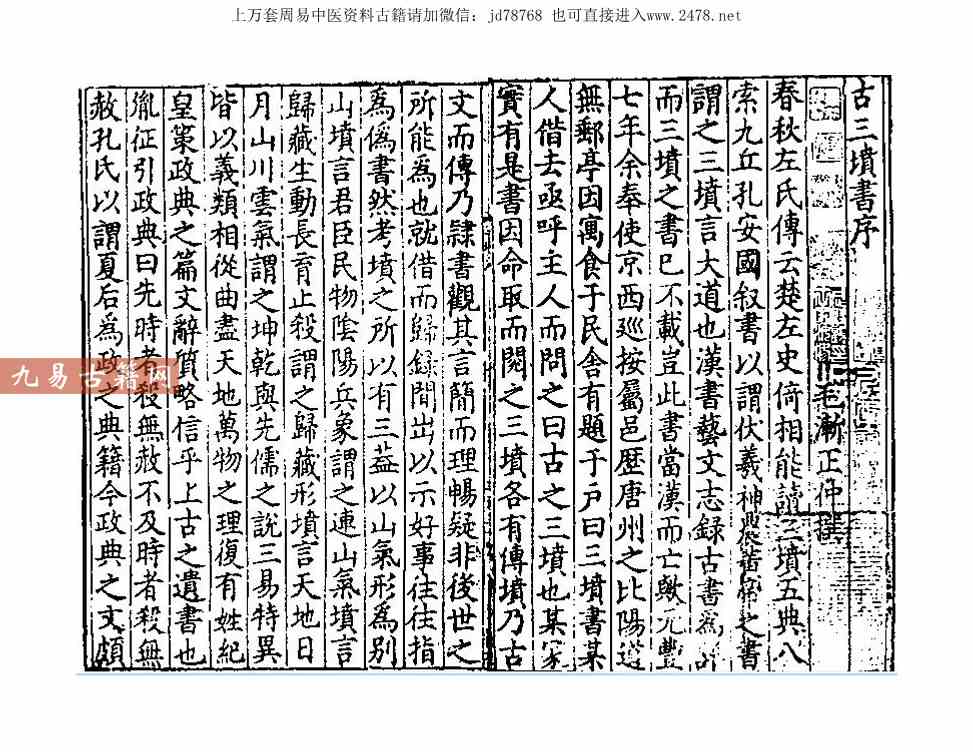 上万套周易中医资料古籍请加微信：jd78768 也可直接进入www.2478.net
古三墳書序
毛漸正仲撰
春秋左氏傳云楚左史倚相能讀三墳五典八
索九丘孔安國叙書以謂伏羲神農黃帝之書
謂之三墳言大道也漢書藝文志錄古書為
而三墳之書已不載豈此書當漢而亡歟元豐
七年余奉使京西巡按屬邑歷唐州之比陽道
無郵亭因寓食于民舍有題于户曰三墳書某
人借去亟呼主人而問之曰古之三墳也某家
實有是書因命取而閱之三墳各有傳墳乃古
文而傳乃隸書觀其言簡而理暢疑非後世之
所能為也就借而歸録間出以示好事往往指
為偽書然考墳之所以有三葢以山氣形為別
山墳言君臣民物陰陽兵象謂之連山氣墳言
歸藏生動長育止殺謂之歸藏形墳言天地日
月山川雲氣謂之坤乾與先儒之說三易特異
皆以義類相從曲盡天地萬物之理復有姓紀
皇策政典之篇文辭質略信乎上古之遺書也
胤征引政典曰先時者殺無赦不及時者殺無
赦孔氏以謂夏后為政之典籍今政典之文頗
九易古籍网